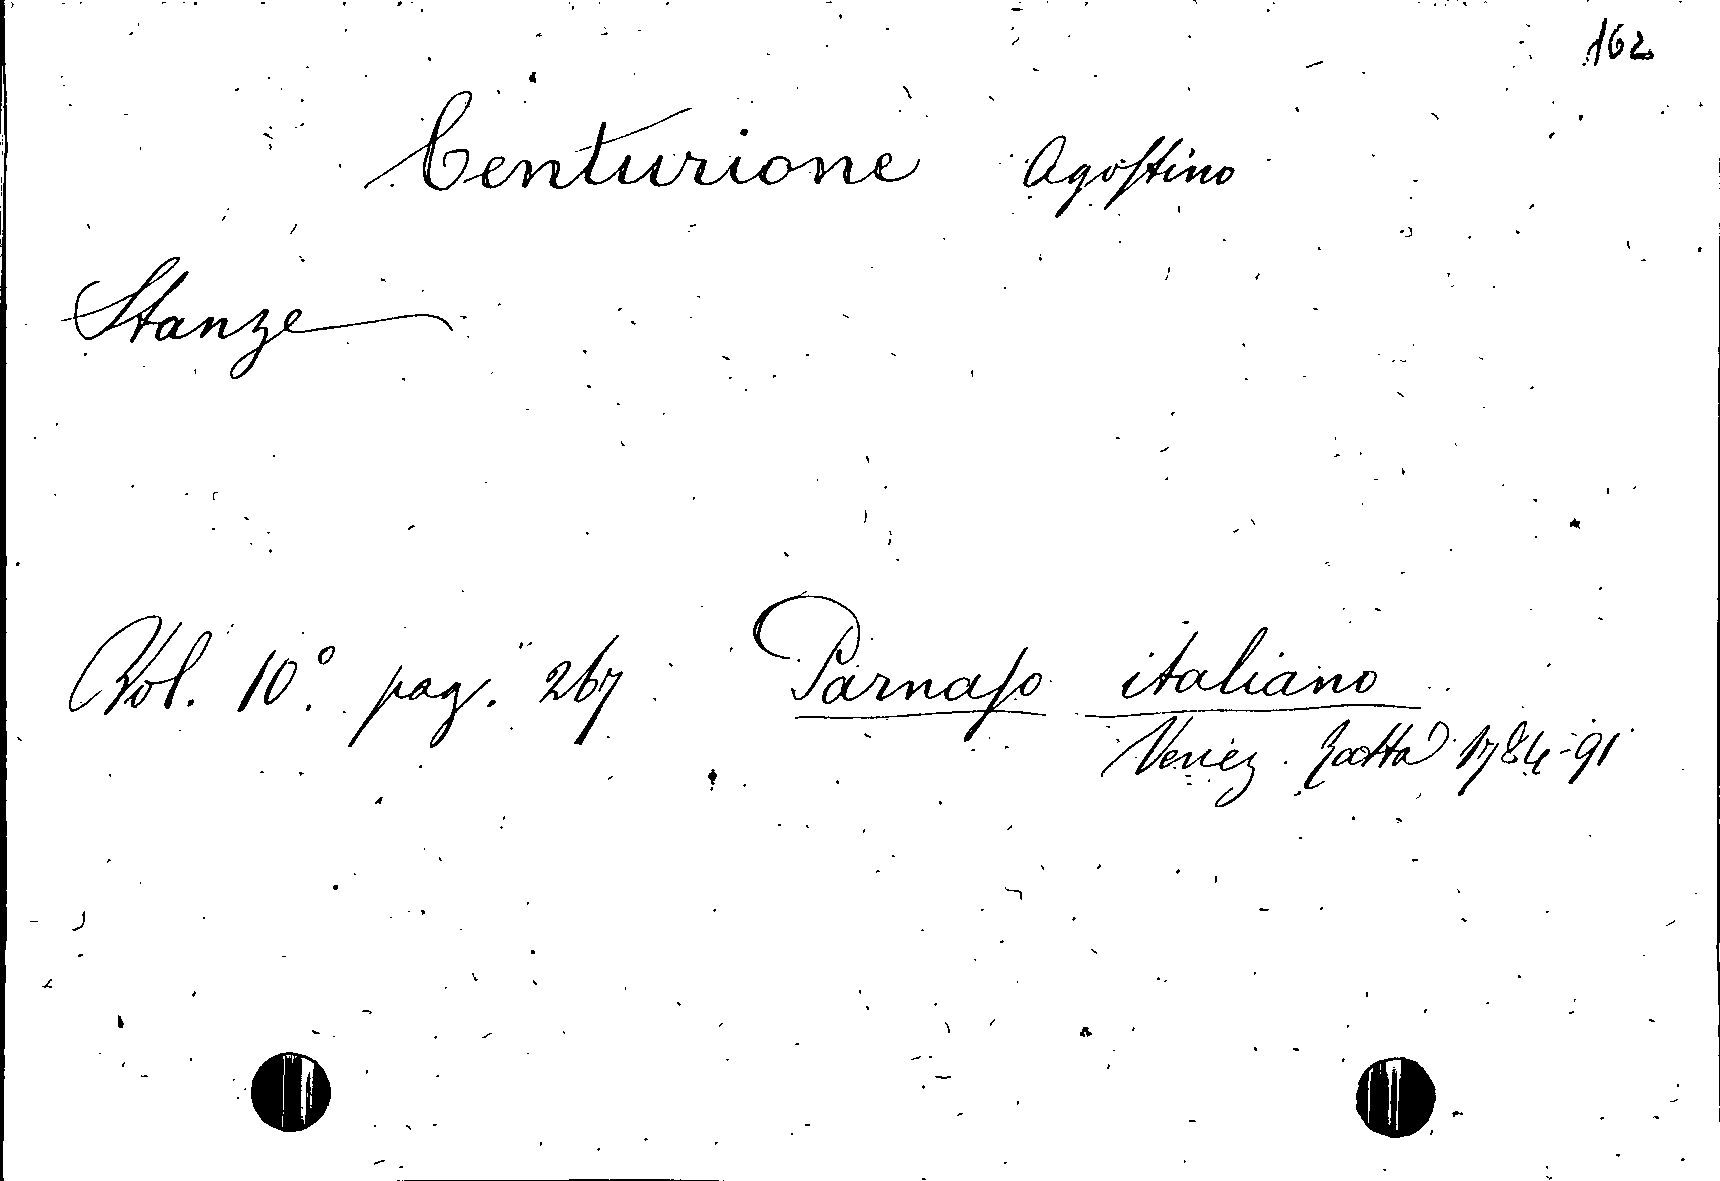 162
Centurione Agostino
Stanze
Vol. 10º. pag. 267 Parnaſo italiano
Venez. Zatta 1784-91